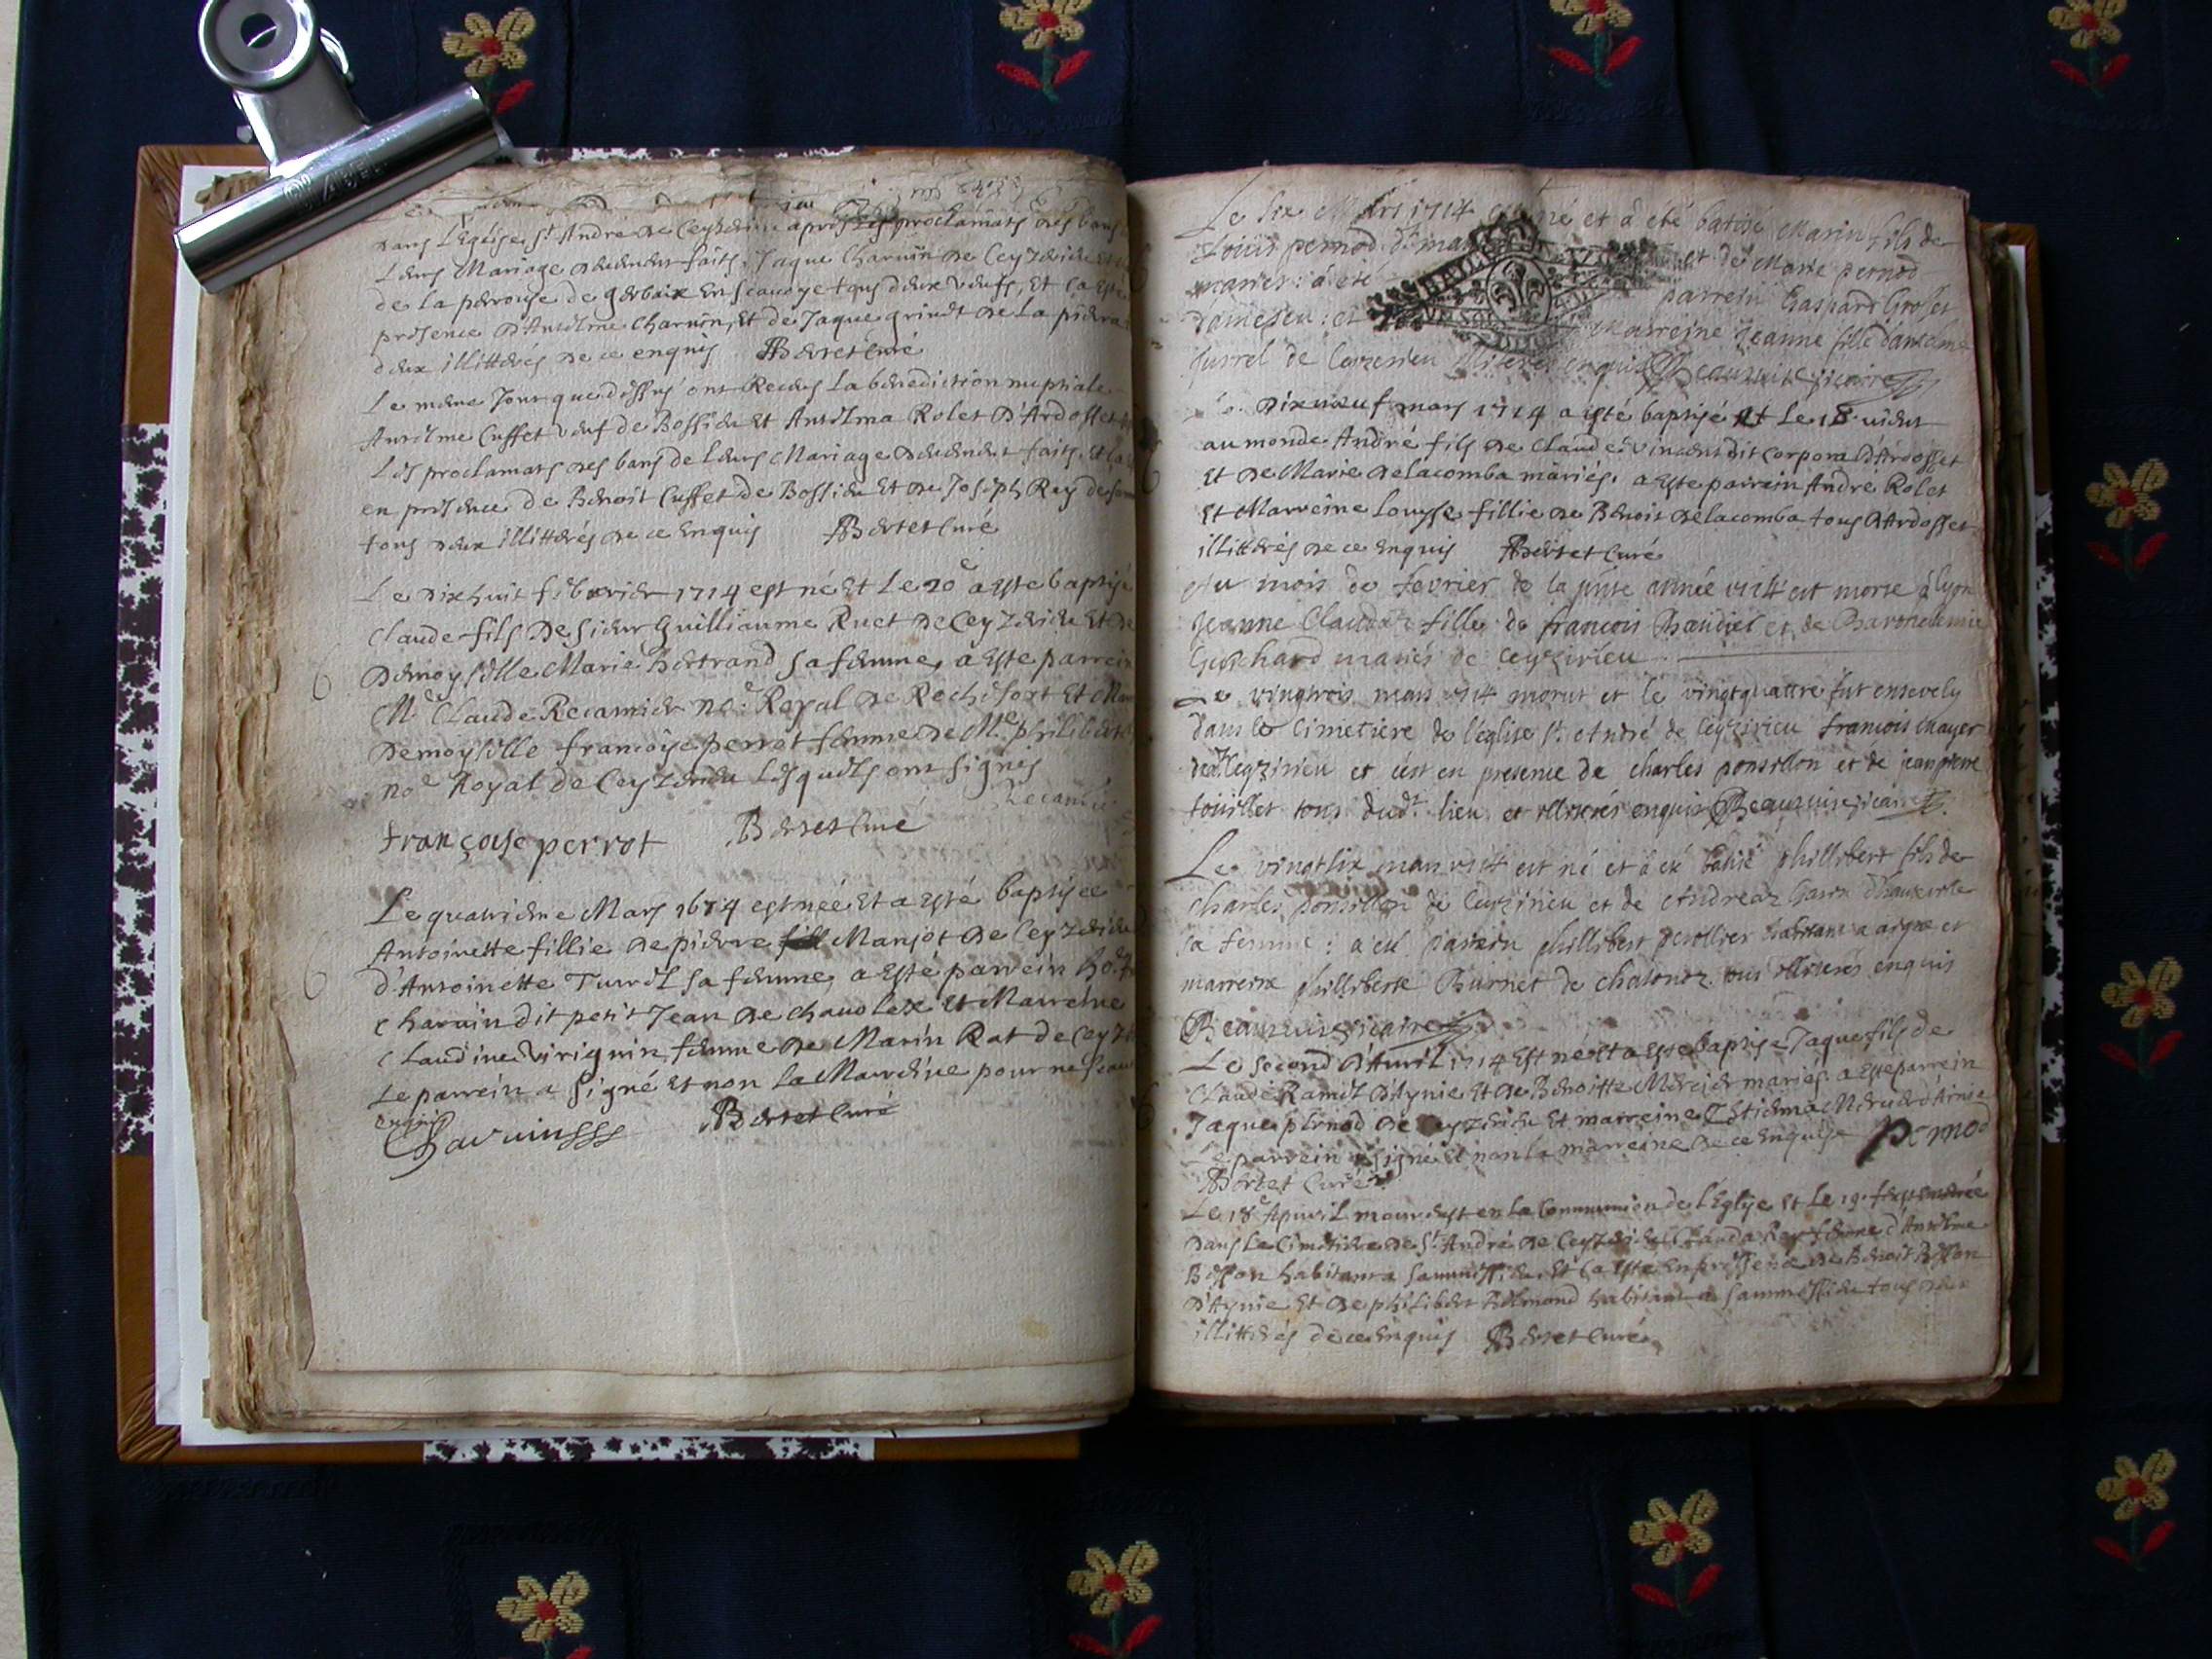 dans L'Eglise St André de Ceyzerieu après les proclamats des bans
Leurs Mariage deuement faits, Jaque Charvin de Ceyzerieu
de la parroisse de gerbaix En scavoye tous deux veufs, Et ça esté
présence d'Antelme Charvin, Et de Jaque grinet de La
deux illittérés de ce enquis Bertet Curé
Le même Jour que dessus ont Receus La benediction nuptiale
Antelme Cuffet veuf de Bossieu Et Antelma Rolet D'Ardosset
Les proclamats des bans de Leurs Mariage deuement faits, Et ça
en présence de Benoit Cuffet de Bossieu Et de Joseph Rey de
tous deux illittérés de ce Enquis Bertet Curé
Le dixhuit febvrier 1714 est né Et Le 20e a esté baptisé
Claude fils De sieur Guilliaume Ruet de Ceyzerieu Et de
Demoyselle Marie Bertrand sa femme, a Esté parrein
Me Claude Recamier noe Royal de Rochefort Et
Demoyselle francoyse perret femme de Me philibert
noe Royal de Ceyzerieu Lesquels ont signés
Recamier
françoise perrot Bertet Curé
Le quatrieme Mars 1674 est née Et a Esté baptisée
Antoinette fillie de pierre Manjot de Ceyzerieu
d'Antoinette Turrel sa femme, a Esté parrein
Charvin dit petit Jean de chavolex Et Marreine
Claudine Virignin femme de Marin Rat de
Le parrein a signé Et non La Marreine pour ne
enquis
Charvin Bertet Curé
Le six Mars 1714 est né et a été batisé Marin fils de
Louis pernod et de Marie pernod
mariés: a été parrein Gaspard Grolet
et Marreine Jeanne fille d'antelme
turrel de Ceyzerieu illiterés enquis Beauvuis vicaire
Le dixneuf mars 1714 a esté baptisé et Le 18 vient
au monde André fils de Claude Vincent dit corporal d'Ardosset
Et de Marie delacomba mariés. a Esté parrein André Rolet
Et Marreine Louyse fillie de Benoit delacomba tous d'Ardosset
illittérés de ce Enquis Bertet Curé
Au mois de fevrier de la pnte année 1714 est morte a lyon
Jeanne Claudaz fille de francois Baudier et de
Guichard mariés de ceyzirieu
Le vingtrois mars 1714 morut et le vingtquattre fut ensevely
dans le Cimetiere de l'église St André de Ceyzirieu francois mayer
dud. Ceyzirieu et c'est en presence de charles ponsillon et de jean pierre
touillet tous dudt lieu et illiterés enquis Beauvuis vicaire
Le vingtsix mars 1714 est né et a eté batisé phillibert fils de
charles ponsillon de Ceyzirieu et de Andreaz
sa femme: a eté parrein phillibert perollier habitant a aigne et
marreine phillberte Burnet de chatonoz. tous illiterés enquis
Beauvuis vicaire
Le second d'Avril 1714 Est né et a Esté baptisé Jaque fils de
Claude Ramel d'Aynie Et de Benoitte Mercier mariés. a Esté parrein
Jaque pernod de Ceyzerieu Et marreine
Le parrein a signé Et non la marreine de ce Enquise pernod
Bertet Curé
Le 18e Apvril mourust en La Communion de L'Eglise Et Le 19e fust enterrée
dans Le Cimetiere de St André de Ceyzerieu Clauda Rey femme d'Antelme
Bosson habitant a Et ça Esté En présence de Benoit Bosson
d'Aynie Et de philibert habitant a tous deux
illittérés de ce Enquis Bertet Curé